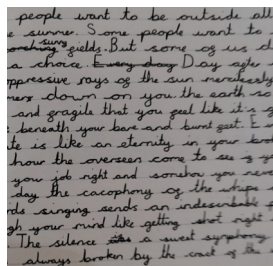 people want to be outside all
e summer. Some people want to
sunny
fields. But some of us d
a choice. Every day Day after
oppressive rays of the sun mercilessly
mers down on you. the earth so
and fragile that you feel like it's g
beneath your bare and burnt feet. E
te is like an eternity in your brok
hour the overseen come to see if y
your job right and somehow you never
day the cacophony of the whips
rds singing sends an indescribable
gh your mind like getting shot right
The silence a sweet symphony
always broken by the crack of the